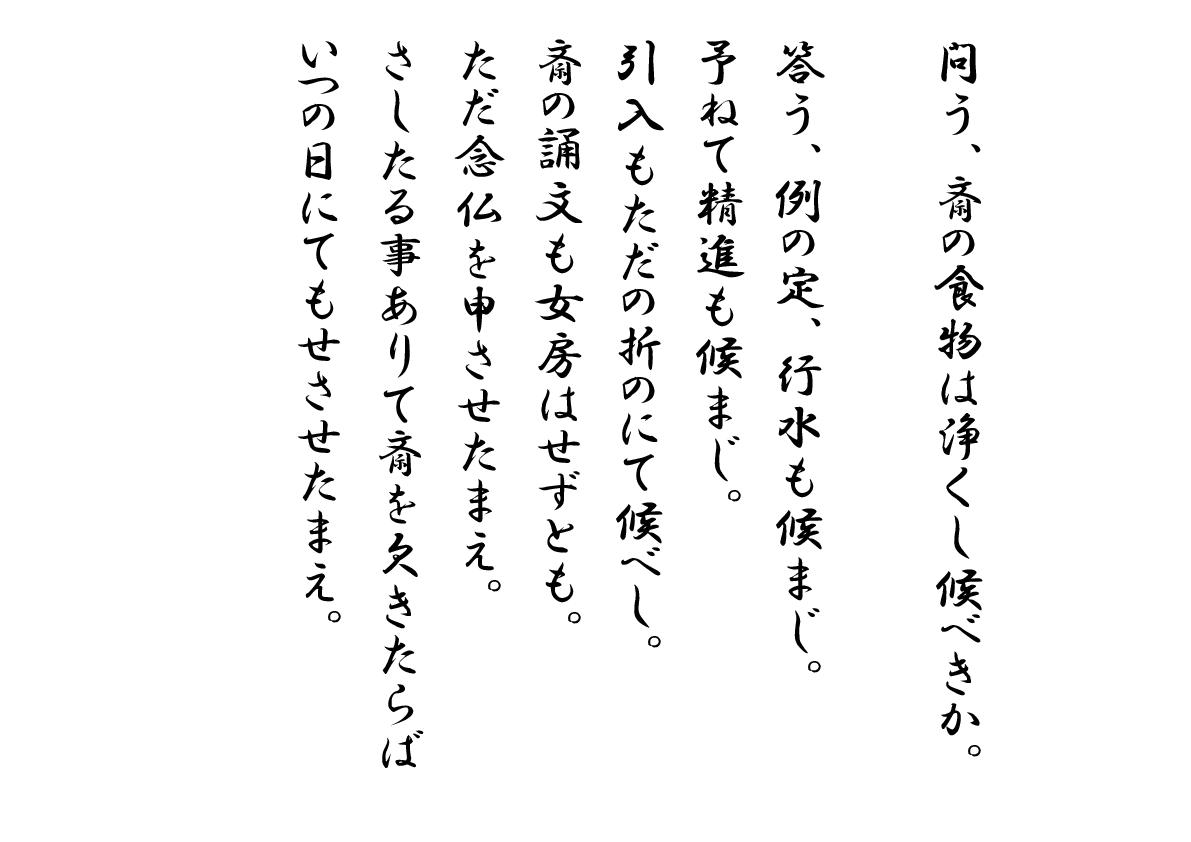 問う、斎の食物は浄くし候べきか。
答う、例の定、行水も候まじ。
予ねて精進も候まじ。
引入もただの折のにて候べし。
斎の誦文も女房はせずとも。
ただ念仏を申させたまえ。
さしたる事ありて斎を欠きたらば
いつの日にてもせさせたまえ。